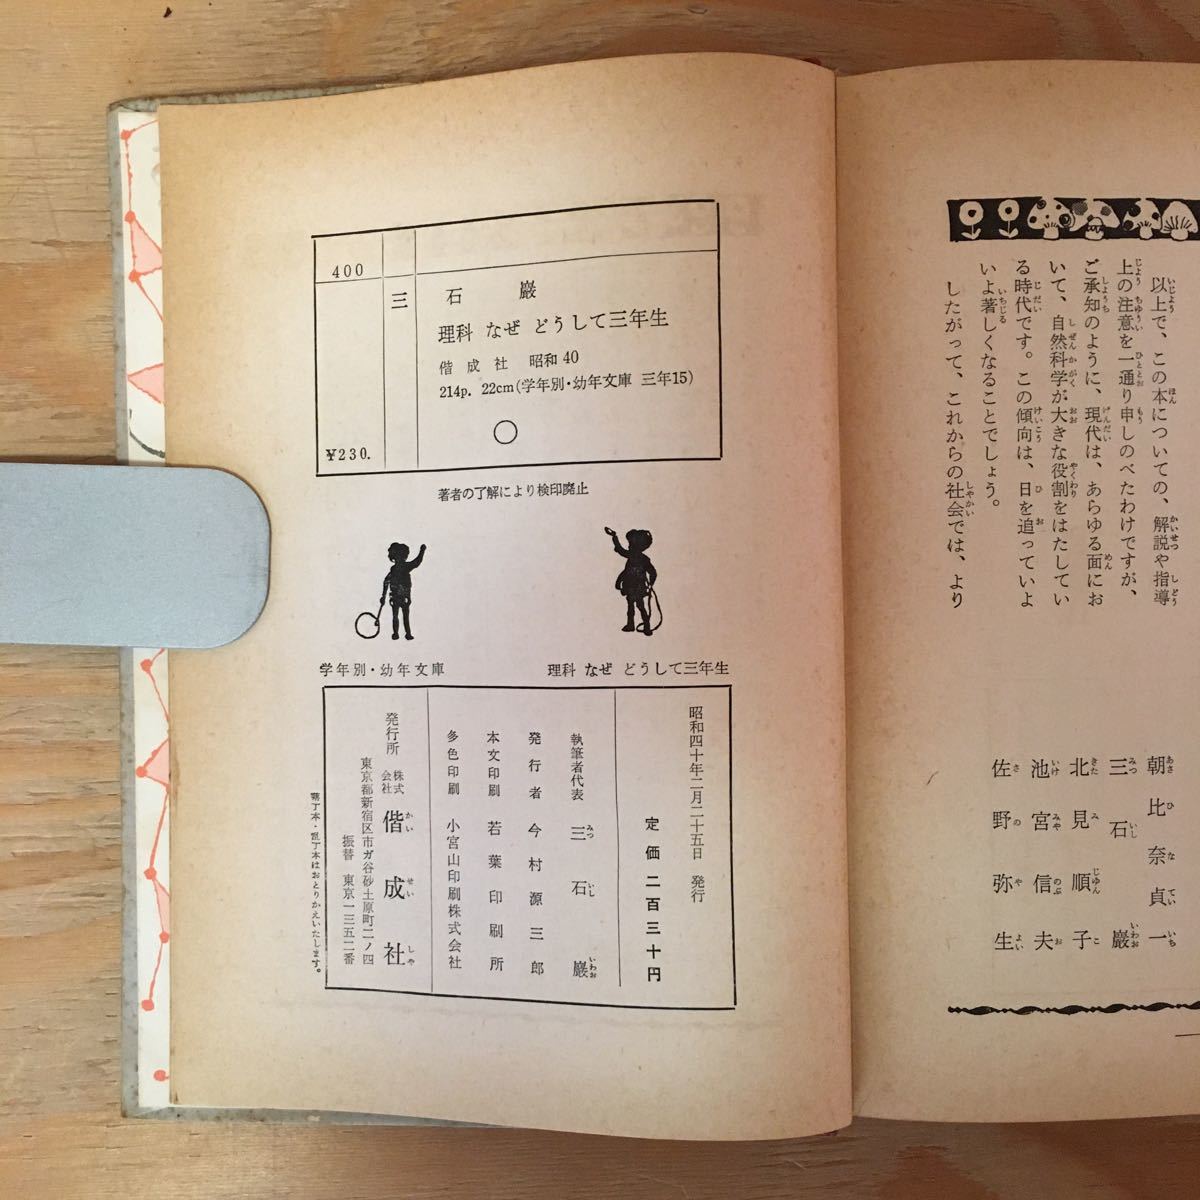 以上で、この本についての、解説や指導
上の注意を一通り申しのべたわけですが、
ご承知のように、現代は、あらゆる面にお
いて、自然科学が大きな役割をはたしてい
る時代です。この傾向は、日を追っていよ
いよ著しくなることでしょう。
したがって、これからの社会では、より
朝比奈貞一
三石巌
北見順子
池宮信夫
佐野弥生
400
三
石 巌
理科 なぜ どうして三年生
偕成社 昭和40
214p. 22cm(学年別・幼年文庫 三年15)
¥230.
著者の了解により検印廃止
学年別・幼年文庫
理科 なぜ どうして三年生
昭和四十年二月二十五日 発行
定価二百三十円
執筆者代表 三石 巌
発行者 今村源三郎
本文印刷 若葉印刷所
多色印刷 小宮山印刷株式会社
発行所 株式会社 偕成社
東京都新宿区市ガ谷砂土原町二ノ四
振替 東京一三五二番
落丁本・乱丁本はおとりかえいたします。